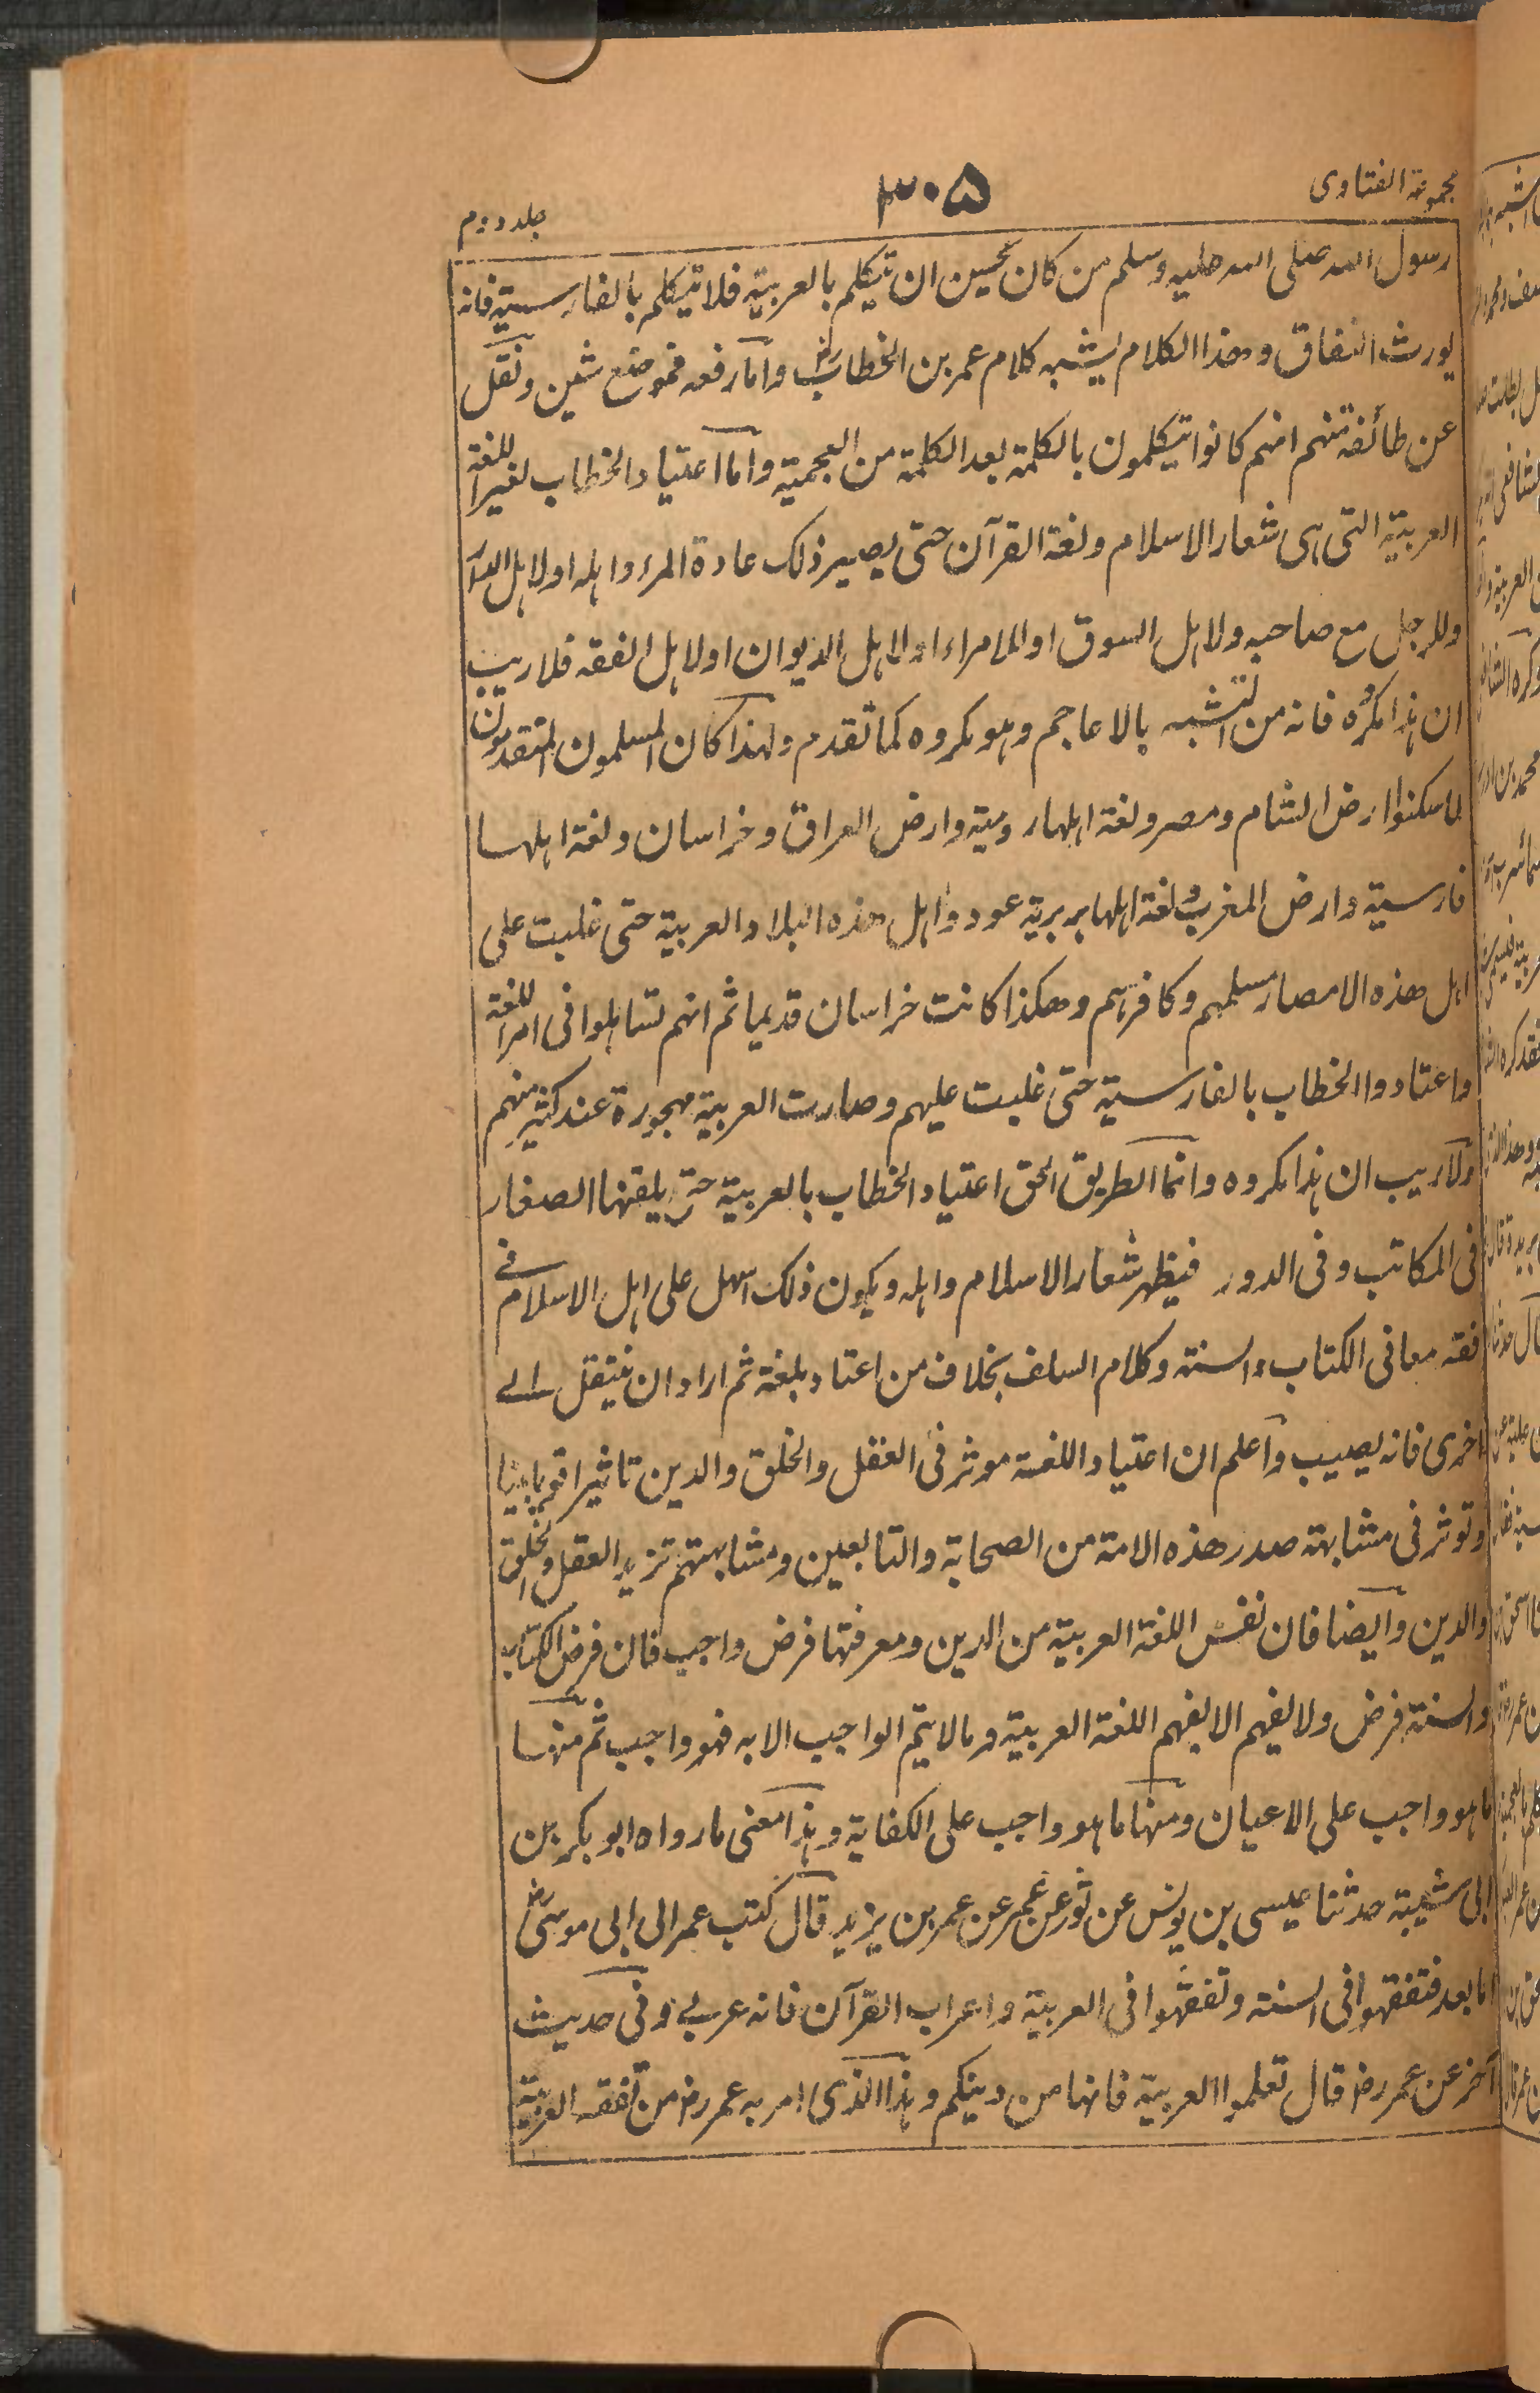 مجموعة الفتاوى
٣٠۵
جلد دوم
رسول الله صلى الله عليه وسلم من كان يحسن ان يتكلم بالعربية فلا يتكلم بالفارسية فانه
يورث النفاق وهذا الكلام يشبه كلام عمر بن الخطاب رض واما رفعه فموضع شين ونقل
عن طائفة منهم انهم كانوا يتكلمون بالكلمة بعد الكلمة من العجمية واما اعتياد الخطاب لغير اللغة
العربية التى هى شعار الاسلام ولغة القرآن حتى يصير ذلك عادة المرء واهله اولاهل الدار
وللرجل مع صاحبه ولاهل السوق اوللامراء اولاهل الديوان اولاهل الفقه فلاريب
ان هذا مكره فانه من التشبه بالاعاجم وهو مكروه كما تقدم ولهذا كان المسلمون المتقدمون
لما سكنوا ارض الشام ومصر ولغة اهلها رومية وارض العراق وخراسان ولغة اهلها
فارسية وارض المغرب ولغة اهلها بربرية عودوا اهل هذه البلاد العربية حتى غلبت على
اهل هذه الامصار مسلمهم وكافرهم وهكذا كانت خراسان قديما ثم انهم تساهلوا فى امر اللغة
واعتادوا الخطاب بالفارسية حتى غلبت عليهم وصارت العربية مهجورة عند كثير منهم
ولاريب ان هذا مكروه وانما الطريق الحق اعتياد الخطاب بالعربية حتى يلقنها الصغار
فى المكاتب وفى الدور فيظهر شعار الاسلام واهله ويكون ذلك اسهل على اهل الاسلام فى
فقه معانى الكتاب والسنة وكلام السلف بخلاف من اعتاد بلغة ثم اراد ان ينتقل الى
اخرى فانه يصيب واعلم ان اعتياد اللغة موثر فى العقل والخلق والدين تاثيرا قويا بينا
وتوثر فى مشابهة صدر هذه الامة من الصحابة والتابعين ومشابهتهم تزيد العقل والخلق
والدين وايضا فان نفس اللغة العربية من الدين ومعرفتها فرض واجب فان فرض الكتاب
والسنة فرض ولا يفهم الا بفهم اللغة العربية ومالا يتم الواجب الا به فهو واجب ثم منها
ما هو واجب على الاعيان ومنها ما هو واجب على الكفاية وهذا معنى ما رواه ابو بكر بن
ابى شيبة حدثنا عيسى بن يونس عن ثور عن عمر عن عمر بن يزيد قال كتب عمر الى ابى موسى رض
اما بعد فتفقهوا فى السنة وتفقهوا فى العربية واعراب القرآن فانه عربى وفى حديث
آخر عن عمر رض قال تعلموا العربية فانها من دينكم وهذا الذى امر به عمر رض من تفقه العربية